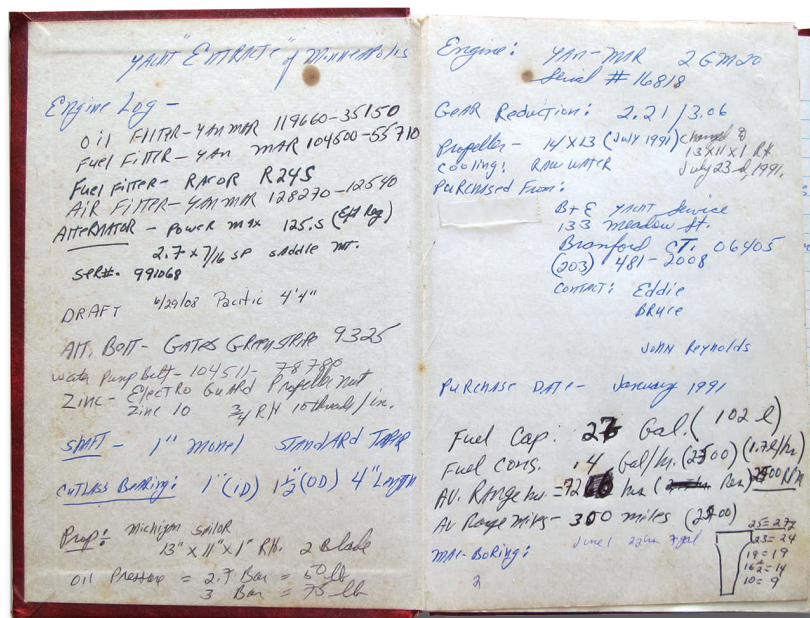 YACHT "ENTRACTE" of Minneapolis
Engine Log -
Oil Filter - YANMAR 119660-35150
Fuel Filter - Yan MAR 104500-55710
Fuel Filter - RACOR R24S
Air Filter - YANMAR 128270-12540
Alternator - Power max 125.5 (Ext Reg)
2.7 x 7/16 SP SADDLE MT.
SER#. 991068
DRAFT 4/29/08 Pacific 4'4"
Alt. Bolt - Gates Greenstripe 9325
Water Pump Belt - 104511- 78780
Zinc - Electro Guard Propeller nut
Zinc 10 3/4 RH 10 threads/in.
SHAFT - 1" Monel STANDARD TAPER
CUTLASS BEARING: 1" (ID) 1 1/2" (OD) 4" Length
Prop: Michigan Sailor
13" x 11" x 1" R.H. 2 Blade
Oil Pressure = 2.7 Bar = 50 lb
3 Bar = 75 lb
Engine: YAN-MAR 2GM20
Serial # 16818
Gear Reduction: 2.21/3.06
Propeller - 14 x 13 (July 1991) changed
13 x 11 x 1 RH.
July 23rd, 1991.
Cooling: RAW WATER
Purchased From:
B+E YACHT Service
133 Meadow St.
Branford CT. 06405
(203) 481-2008
Contact: Eddie
Bruce
John Reynolds
Purchase Date - January 1991
Fuel Cap: Gal. (102 l)
Fuel Cons. .4 Gal/hr. (1.7 l/hr)
Av. Range hr. = hrs
Av Range miles - 300 miles
June 1 22hr 7 gal
25=27
23=24
19=19
16 1/2=14
10=9
2